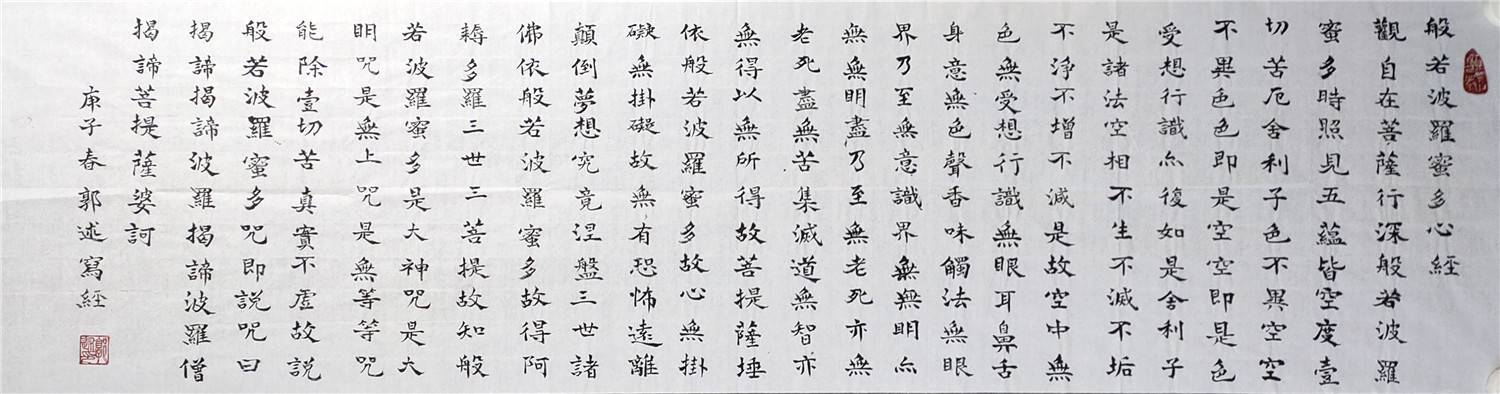 般若波羅蜜多心経
觀自在菩薩行深般若波羅
蜜多時照見五蘊皆空度壹
切苦厄舍利子色不異空空
不異色色即是空空即是色
受想行識亦復如是舍利子
是諸法空相不生不滅不垢
不淨不增不減是故空中無
色無受想行識無眼耳鼻舌
身意無色聲香味觸法無眼
界乃至無意識界無無明亦
無無明盡乃至無老死亦無
老死盡無苦集滅道無智亦
無得以無所得故菩提薩埵
依般若波羅蜜多故心無掛
礙無掛礙故無有恐怖遠離
顛倒夢想究竟涅盤三世諸
佛依般若波羅蜜多故得阿
耨多羅三世三菩提故知般
若波羅蜜多是大神咒是大
明咒是無上咒是無等等咒
能除壹切苦真實不虛故説
般若波羅蜜多咒即説咒曰
揭諦揭諦波羅揭諦波羅僧
揭諦菩提薩婆訶
庚子春郭述寫経